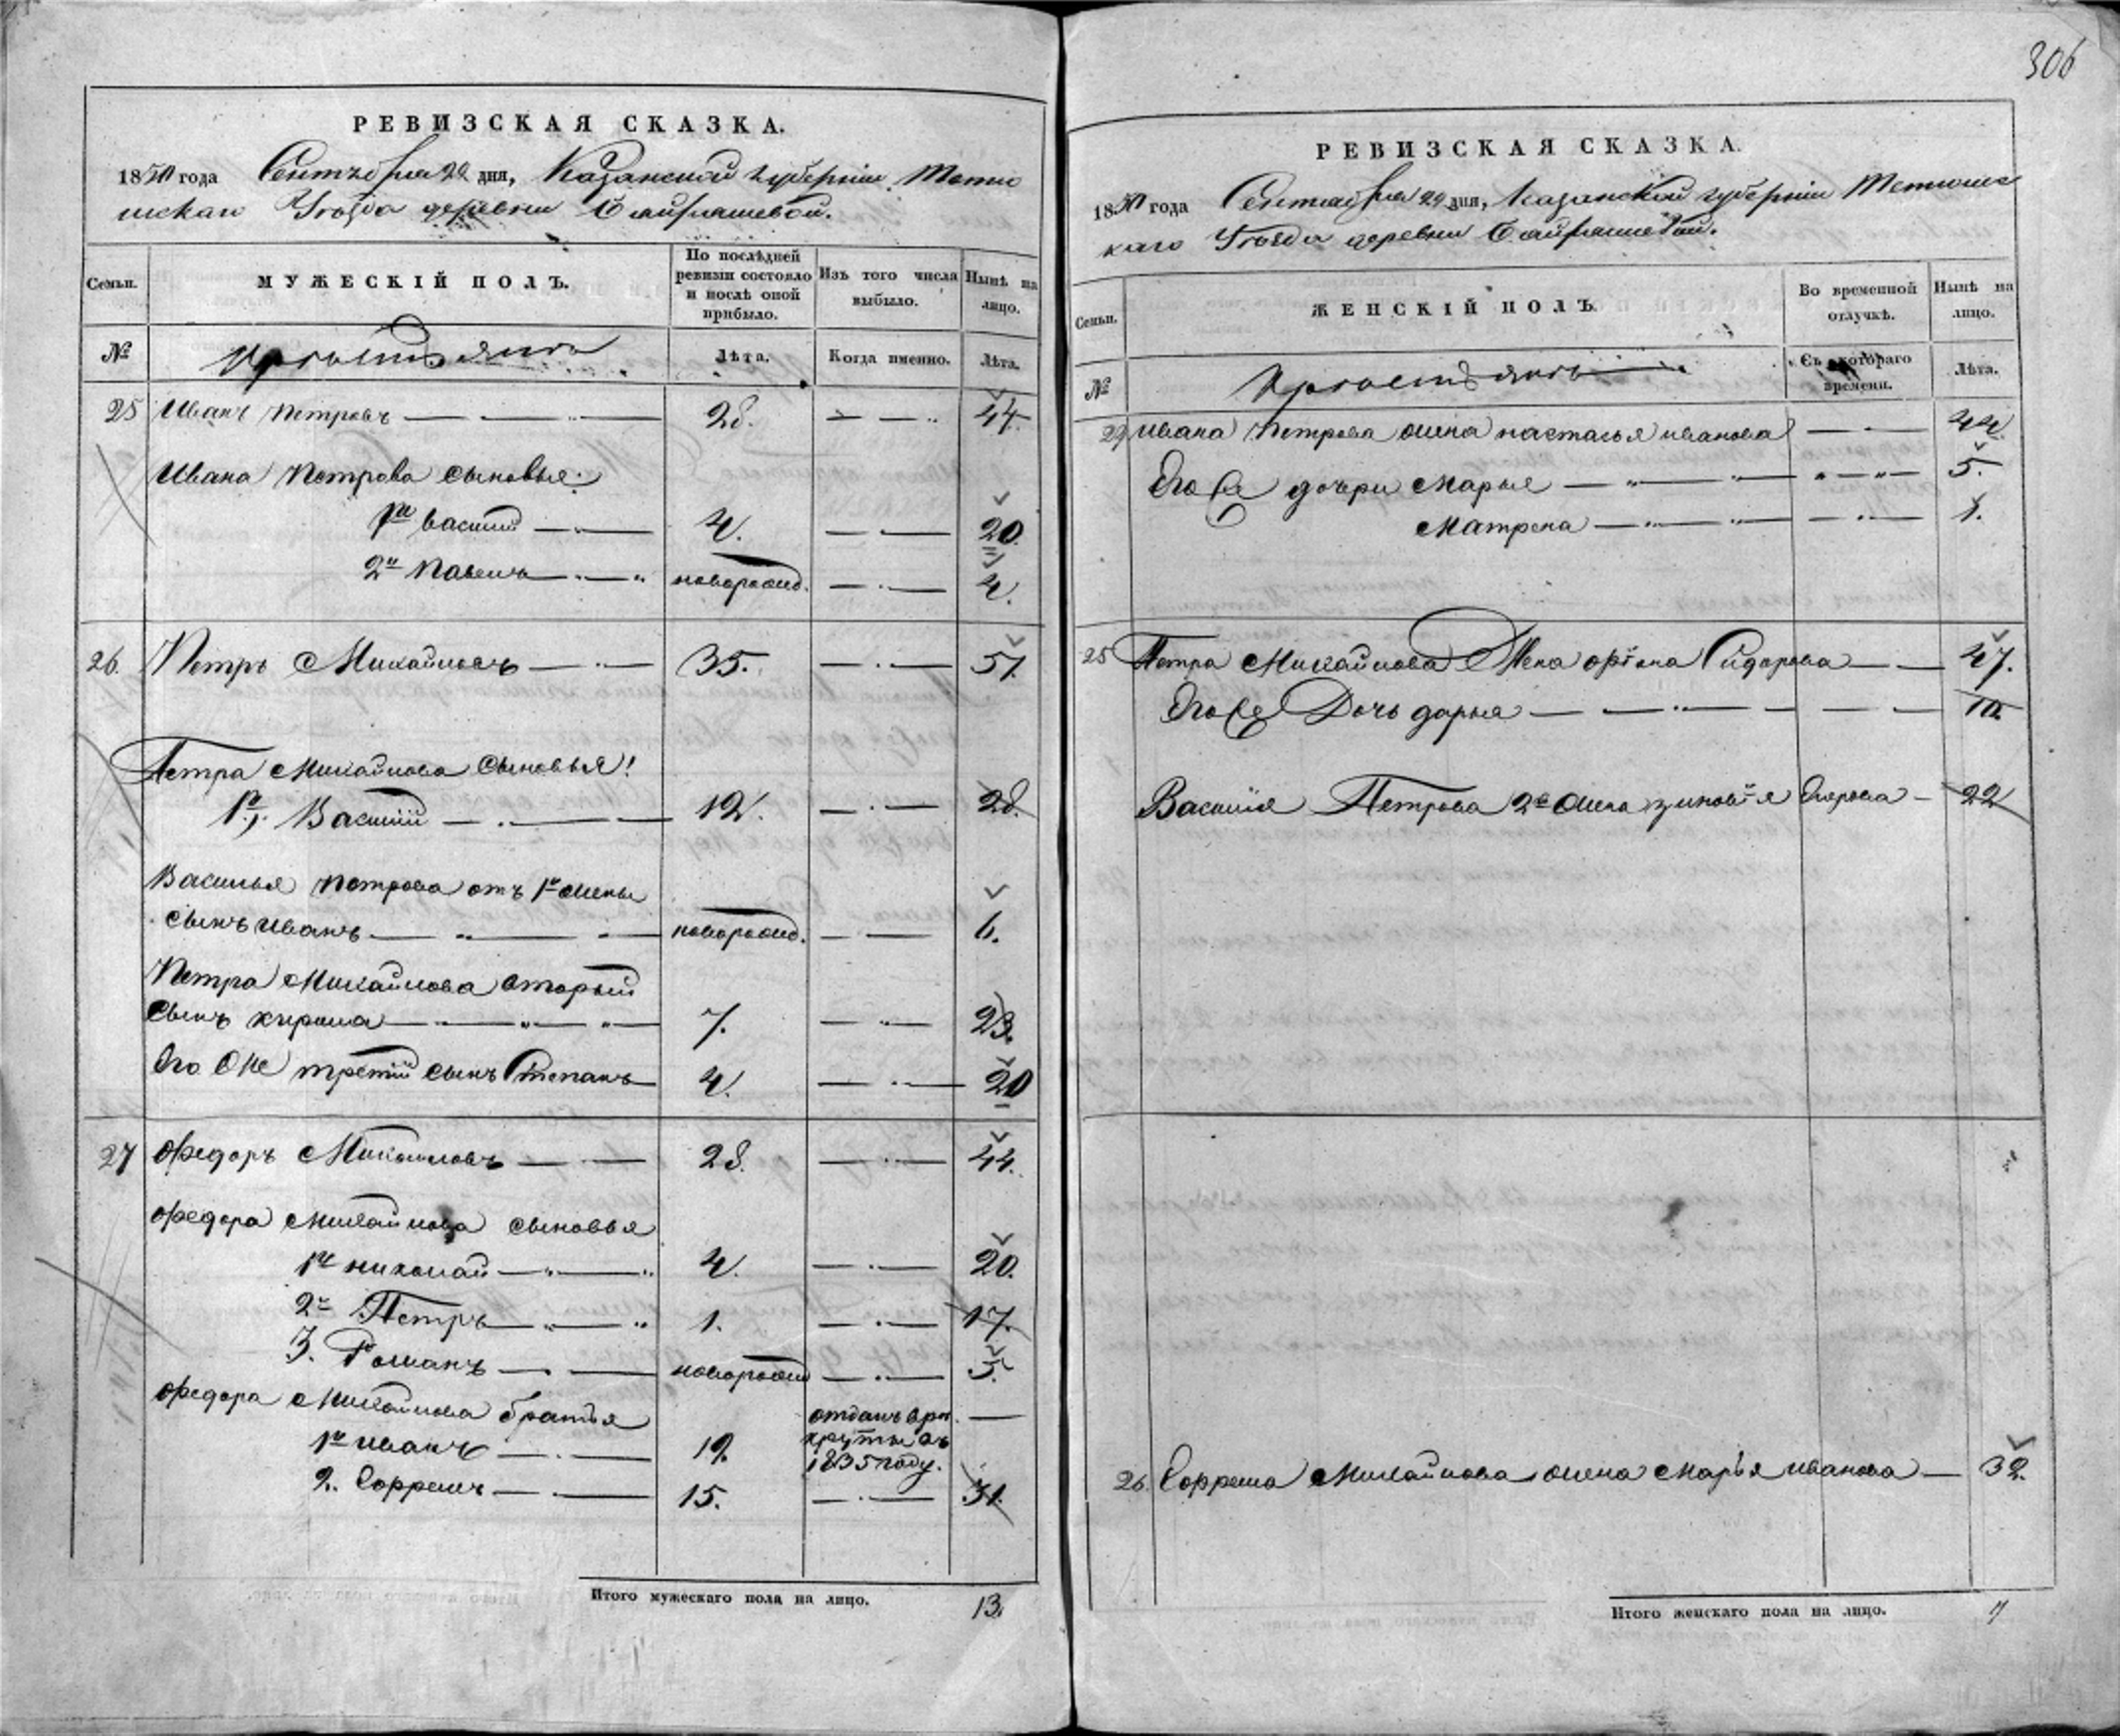 306
РЕВИЗСКАЯ СКАЗКА.
1850 года Сентября 22 дня, Казанской губерніи Тетю
шскаго Уѣзда деревни Байряшевой.
Семьи. МУЖЕСКІЙ ПОЛЪ. По послѣдней ревизіи состояло и послѣ оной прибыло. Изъ того числа выбыло. Нынѣ на лицо.
№ Крестьяне Лѣта. Когда именно. Лѣта.
25 Иванъ Петровъ 28. 44.
Ивана Петрова сыновья:
1й Василій 4. 20.
2й Павелъ новорожд. 4.
26. Петръ Михайловъ 35. 51.
Петра Михайлова Сыновья!
1й, Василій 12. 28.
Василья Петрова отъ 1й жены
сынъ Иванъ новорожд. 6.
Петра Михайлова вторый
сынъ 7. 23.
Его же третій сынъ Степанъ 4. 20
27 Федоръ Михайловъ 28. 44.
Федора Михайлова сыновья
1й Николай 4. 20.
2й Петръ 1. 17.
3. Романъ новорожд 5.
Федора Михайлова братья
1й Иванъ 19. отданъ в ре
круты въ
1835 году.
2. Ефремъ 15. 31.
Итого мужескаго пола на лицо. 13.
РЕВИЗСКАЯ СКАЗКА.
1850 года Сентября 22 дня, Казанской губерніи Тетюшс
каго Уѣзда деревни Байряшевой.
Семьи. ЖЕНСКІЙ ПОЛЪ. Во временной отлучкѣ. Нынѣ на лицо.
№ Крестьяне Съ котораго времени. Лѣта.
Ивана Петрова жена Настасья Иванова 44.
Его же дочери Марья 5.
Матрена 1.
25 Петра Михайлова Жена Сидорова 47.
Его же Дочь Дарья
Василія Петрова 2я жена Зиновія Егорова 22
26. Ефрема Михайлова жена Марья Иванова 32.
Итого женскаго пола на лицо. 7